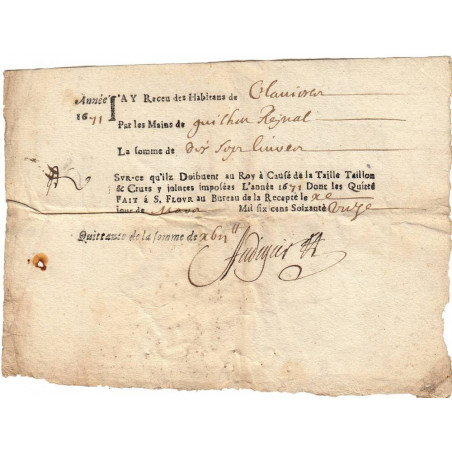 Année J'AY Receu des Habitans de
1671 Par les Mains de guilhen Reynal
La somme de
SVR-ce qu'ilz Doibuent au Roy à Cause de la Taille Taillon
& Crues y iointes imposées L'année 1671 Dont les Quicté
FAIT à S. FLOVR au Bureau de la Recepte le xe
iour de Mars Mil six cens Soixante Vnze
Quittance de la somme de